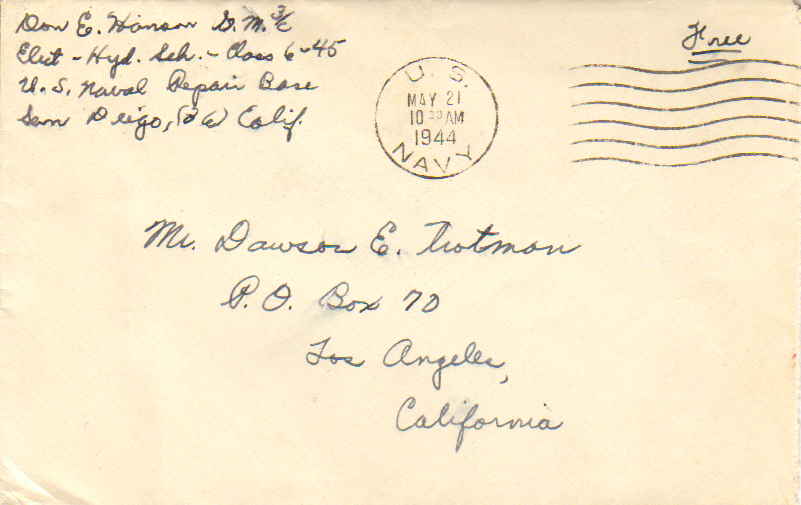 Don E. Hanson G.M. 3/c
Elect - Hyd. Sch. - Class 6-45
U.S. Naval Repair Base
San Diego, Calif.
Free
U. S.
MAY 21
10 AM
1944
NAVY
Mr. Dawson E. Trotman
P.O. Box 70
Los Angeles,
California